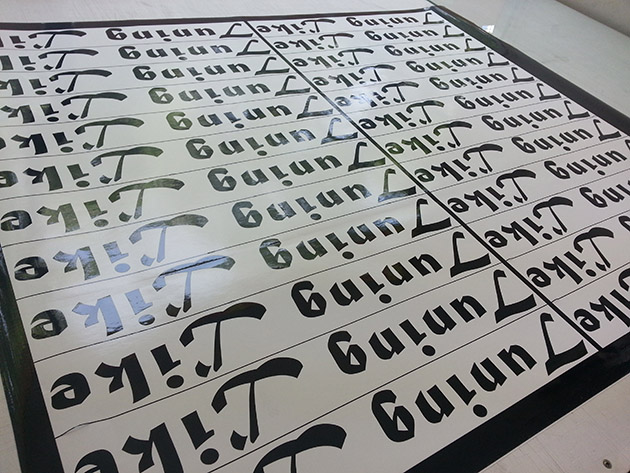 Tuning Like Tuning Like
Tuning Like Tuning Like
Tuning Like Tuning Like
Tuning Like Tuning Like
Tuning Like Tuning Like
Tuning Like Tuning Like
Tuning Like Tuning Like
Tuning Like Tuning Like
Tuning Like Tuning Like
Tuning Like Tuning Like
Tuning Like Tuning Like
Tuning Like Tuning Like